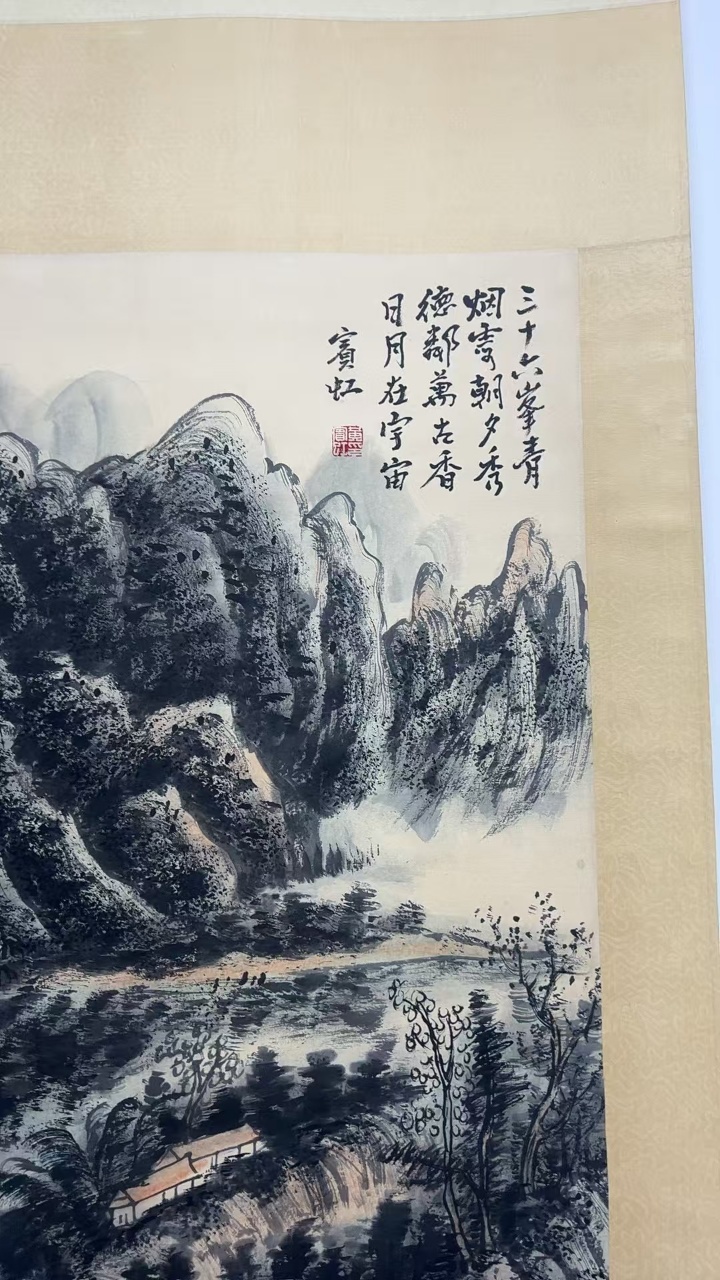 三十六峯青
烟霭朝夕秀
德鄰萬古香
日月在宇宙
賓虹